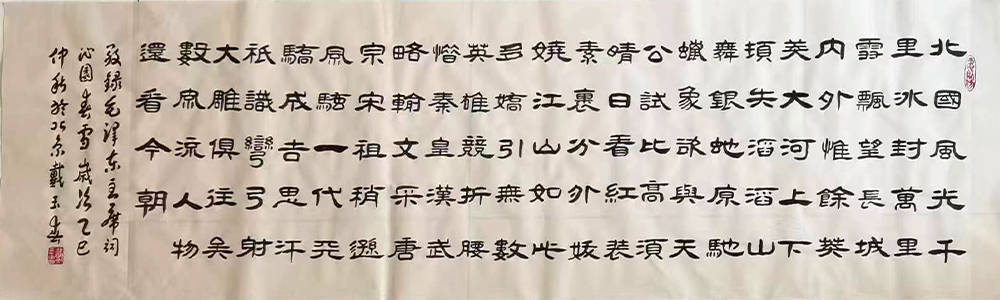 北國風光千
里冰封萬里
雪飄望長城
内外惟餘莽
莽大河上下
頓失滔滔山
舞銀蛇原馳
蠟象欲與天
公試比高須
晴日看紅裝
素裹分外妖
嬈江山如此
多嬌引無數
英雄競折腰
惜秦皇漢武
略輸文采唐
宗宋祖稍遜
風騷一代天
驕成吉思汗
祇識彎弓射
大雕俱往矣
數風流人物
還看今朝
敬錄毛澤東主席詞
沁園春雪歲次乙巳
仲秋於北京戴